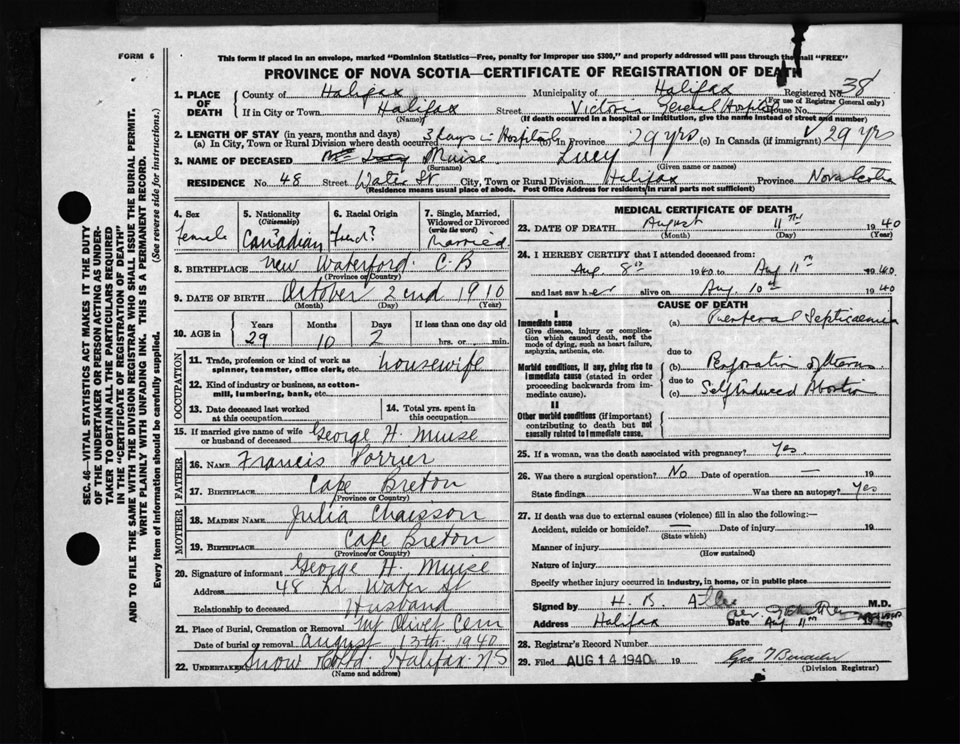 FORM 6
This form if placed in an envelope, marked "Dominion Statistics—Free, penalty for improper use $300," and properly addressed will pass through the mail "FREE"
PROVINCE OF NOVA SCOTIA—CERTIFICATE OF REGISTRATION OF DEATH
1. PLACE OF DEATH
County of Halifax Municipality of Halifax Registered No. 38
(For use of Registrar General only)
If in City or Town Halifax Street Victoria General Hospital House No.
(Name) (If death occurred in a hospital or institution, give the name instead of street and number)
2. LENGTH OF STAY (in years, months and days)
(a) In City, Town or Rural Division where death occurred 3 days in Hospital (b) In Province 29 yrs (c) In Canada (if immigrant) 29 yrs
3. NAME OF DECEASED Muise Lucy
(Surname) (Given name or names)
RESIDENCE No. 48 Street Water St City, Town or Rural Division Halifax Province Nova Scotia
(Residence means usual place of abode. Post Office Address for residents in rural parts not sufficient)
4. Sex
Female
5. Nationality
(Citizenship)
Canadian
6. Racial Origin
French?
7. Single, Married, Widowed or Divorced
(write the word)
Married
8. BIRTHPLACE New Waterford C.B
(Province or Country)
9. DATE OF BIRTH October 2nd 1910
(Month) (Day) (Year)
10. AGE in
Years
29
Months
10
Days
2
If less than one day old
hrs. or min.
OCCUPATION
11. Trade, profession or kind of work as spinner, teamster, office clerk, etc. housewife
12. Kind of industry or business, as cotton-mill, lumbering, bank, etc.
13. Date deceased last worked at this occupation
14. Total yrs. spent in this occupation
15. If married give name of wife or husband of deceased George H. Muise
FATHER
16. NAME Francis Porrier
17. BIRTHPLACE Cape Breton
(Province or Country)
MOTHER
18. MAIDEN NAME Julia Chaisson
19. BIRTHPLACE Cape Breton
(Province or Country)
20. Signature of informant George H. Muise
Address 48 Water St
Relationship to deceased Husband
21. Place of Burial, Cremation or Removal Mt Olivet Cem
Date of burial or removal August 13th 1940
22. UNDERTAKER Snow Halifax N S
(Name and address)
MEDICAL CERTIFICATE OF DEATH
23. DATE OF DEATH August 11th 1940
(Month) (Day) (Year)
24. I HEREBY CERTIFY that I attended deceased from:
Aug. 8th 1940 to Aug 11th 1940
and last saw her alive on Aug. 10th 1940
CAUSE OF DEATH
I
Immediate cause
Give disease, injury or complication which caused death, not the mode of dying, such as heart failure, asphyxia, asthenia, etc.
(a) Puerperal Septicaemia
due to
Morbid conditions, if any, giving rise to immediate cause (stated in order proceeding backwards from immediate cause).
(b) Perforation of Uterus
due to
(c) Self induced Abortion
II
Other morbid conditions (if important) contributing to death but not causally related to immediate cause.
25. If a woman, was the death associated with pregnancy? Yes.
26. Was there a surgical operation? No Date of operation — 19
State findings Was there an autopsy? Yes
27. If death was due to external causes (violence) fill in also the following:—
Accident, suicide or homicide? — Date of injury 19
(State which)
Manner of injury
(How sustained)
Nature of injury
Specify whether injury occurred in industry, in home, or in public place
Signed by H. B. M.D.
Address Halifax Date Aug 11th
28. Registrar's Record Number
29. Filed AUG 14 1940 19
(Division Registrar)
SEC. 46—VITAL STATISTICS ACT MAKES IT THE DUTY
OF THE UNDERTAKER OR PERSON ACTING AS UNDER-
TAKER TO OBTAIN ALL THE PARTICULARS REQUIRED
IN THE "CERTIFICATE OF REGISTRATION OF DEATH"
AND TO FILE THE SAME WITH THE DIVISION REGISTRAR WHO SHALL ISSUE THE BURIAL PERMIT.
WRITE PLAINLY WITH UNFADING INK. THIS IS A PERMANENT RECORD.
Every item of Information should be carefully supplied. (See reverse side for instructions.)